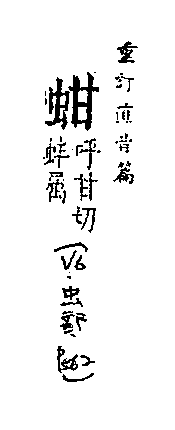 重訂直音篇
蚶
呼甘切
蚌属
(V6·虫部 P562)